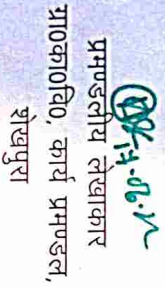 प्रमण्डलीय लेखाकार
ग्रा०का०वि०, कार्य प्रमण्डल,
शेखपुरा